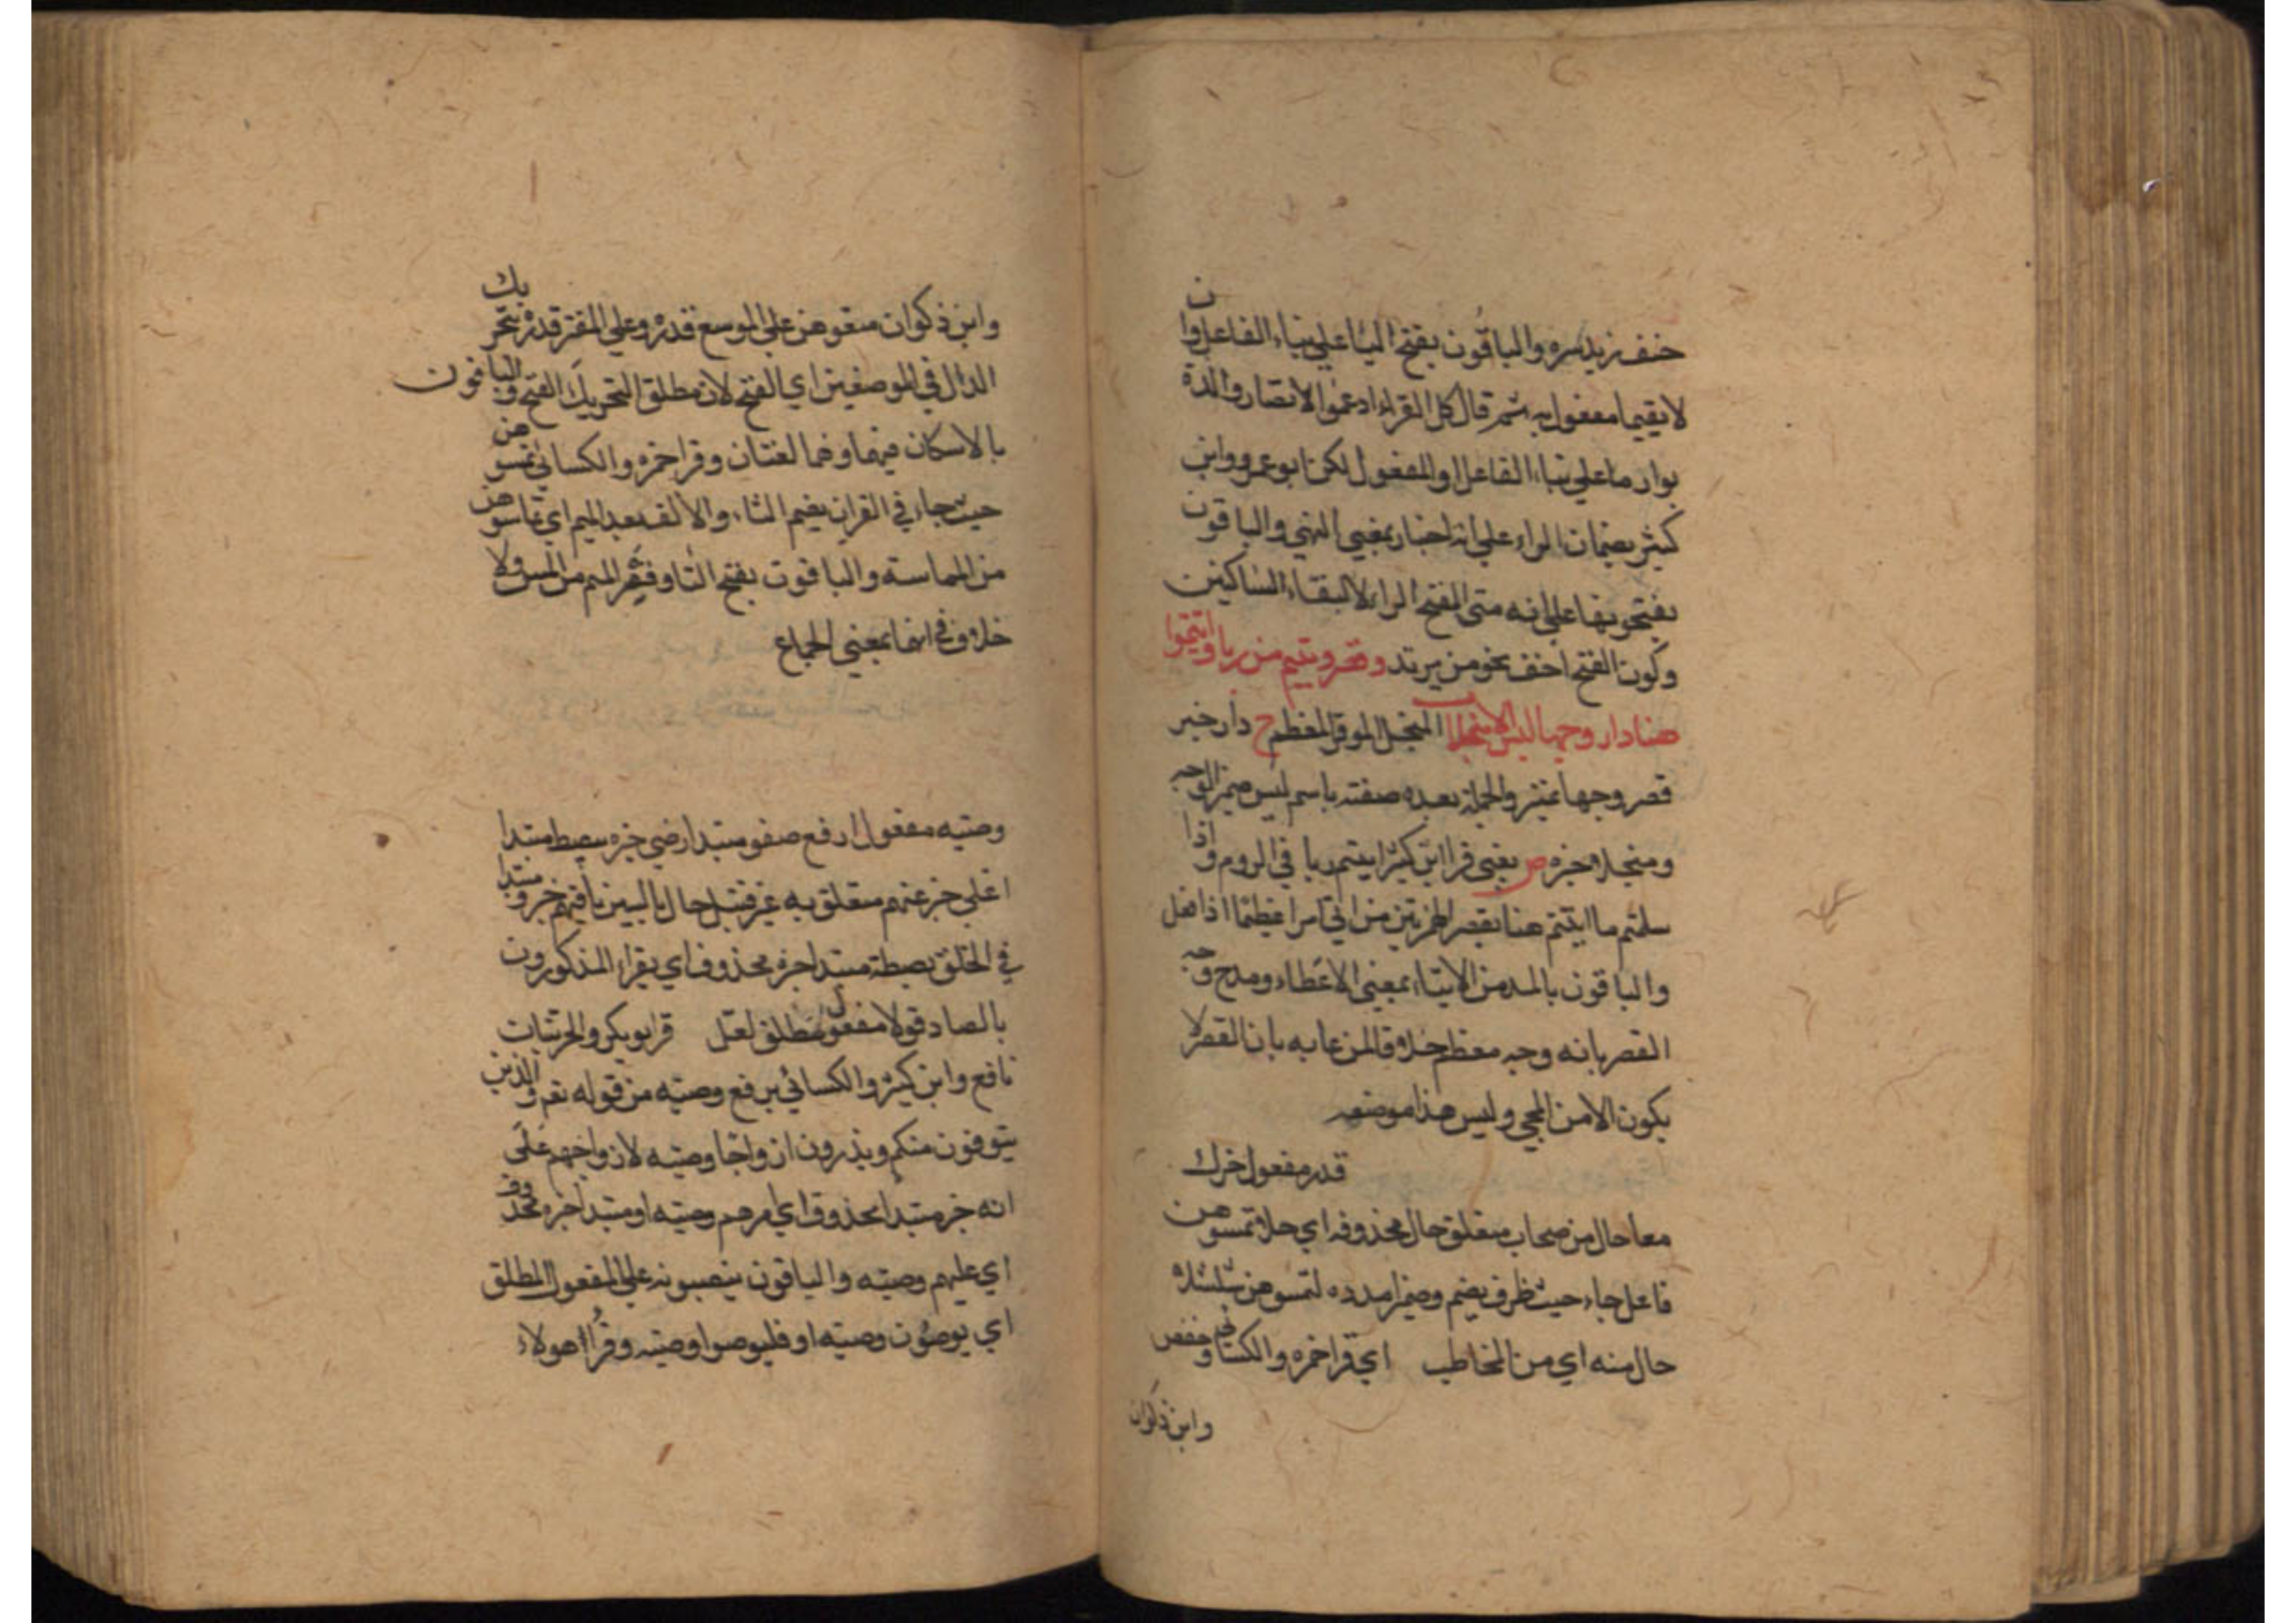 حذف زيد سره والباقون بفتح اليا علي بناء الفاعل وان
لا يقيما مفعول به ثم قال كل القراء ادغموا لا تضار والدة
بوارها علي بناء الفاعل او المفعول لكن ابو عمرو وابن
كثير يضمان الراء علي انه اخبار بمعني النهي والباقون
يفتحونها علي انه متي المفتح الراء لالتقاء الساكنين
وكون الفتح اخف نحو من يرتد وقصر وتيتم من ربا واتيتموا
هنا دار وجها ليس الا مبجلا المبجل الموقر المعظم ح دار خبر
قصر وجها تمييز والجملة بعده صفته باسم ليس ضمير الوجه
ومبجلا خبره ص يعني قرا ابن كثير اتيتم ربا في الروم واذا
سلمتم ما اتيتم هنا بقصر الهمزتين من اتي امرا عظيما اذا فعل
والباقون بالمد من الايتاء بمعني الاعطاء ومدح وجه
القصر بانه وجه معظم خلافا لمن عابه بان القصر لا
يكون الا من المجي وليس هذا موضعه
قدر مفعول حرك
معا حال من صحاب متعلق حال محذوفه اي حلا تمسوهن
فاعل جاء حيث ظرف يضم وضمير امدده لتمسوهن شلشلا
حال منه اي من المخاطب اي قرا حمزه والكسائي وحفص
وابن ذكوان
وابن ذكوان متعوهن علي الموسع قدره وعلي المقتر قدره بتحريك
الدال في الموضعين اي الفتح لان مطلق التحريك الفتح والباقون
بالاسكان فيهما وهما لغتان وقرا حمزه والكسائي تمسوهن
حيث جاء في القران بضم التاء والالف بعد الميم اي تماسوهن
من المماسة والباقون بفتح التا وقصر الميم من المس ولا
خلاف في انهما بمعني الجماع
وصيه مفعول ارفع صفو مبتدا رضي خبره يبصط مبتدا
اعلي خبر عنهم متعلق به غير قنبل حال بالسين باقيهم خبر ومبتدا
في الخلق بصطة مبتدا خبره محذوف اي يقراء المذكورون
بالصاد قولا مفعول مطلق لعتل قرا بو بكر والحرميات
نافع وابن كثير والكسائي برفع وصيه من قوله تعم والذين
يتوفون منكم ويذرون ازواجا وصيه لازواجهم علي
انه خبر مبتدا محذوف اي امرهم وصيه او مبتدا خبره محذوف
اي عليهم وصيته والباقون ينصبونه علي المفعول المطلق
اي يوصون وصيته او فليوصوا وصيته وقرا هولاء